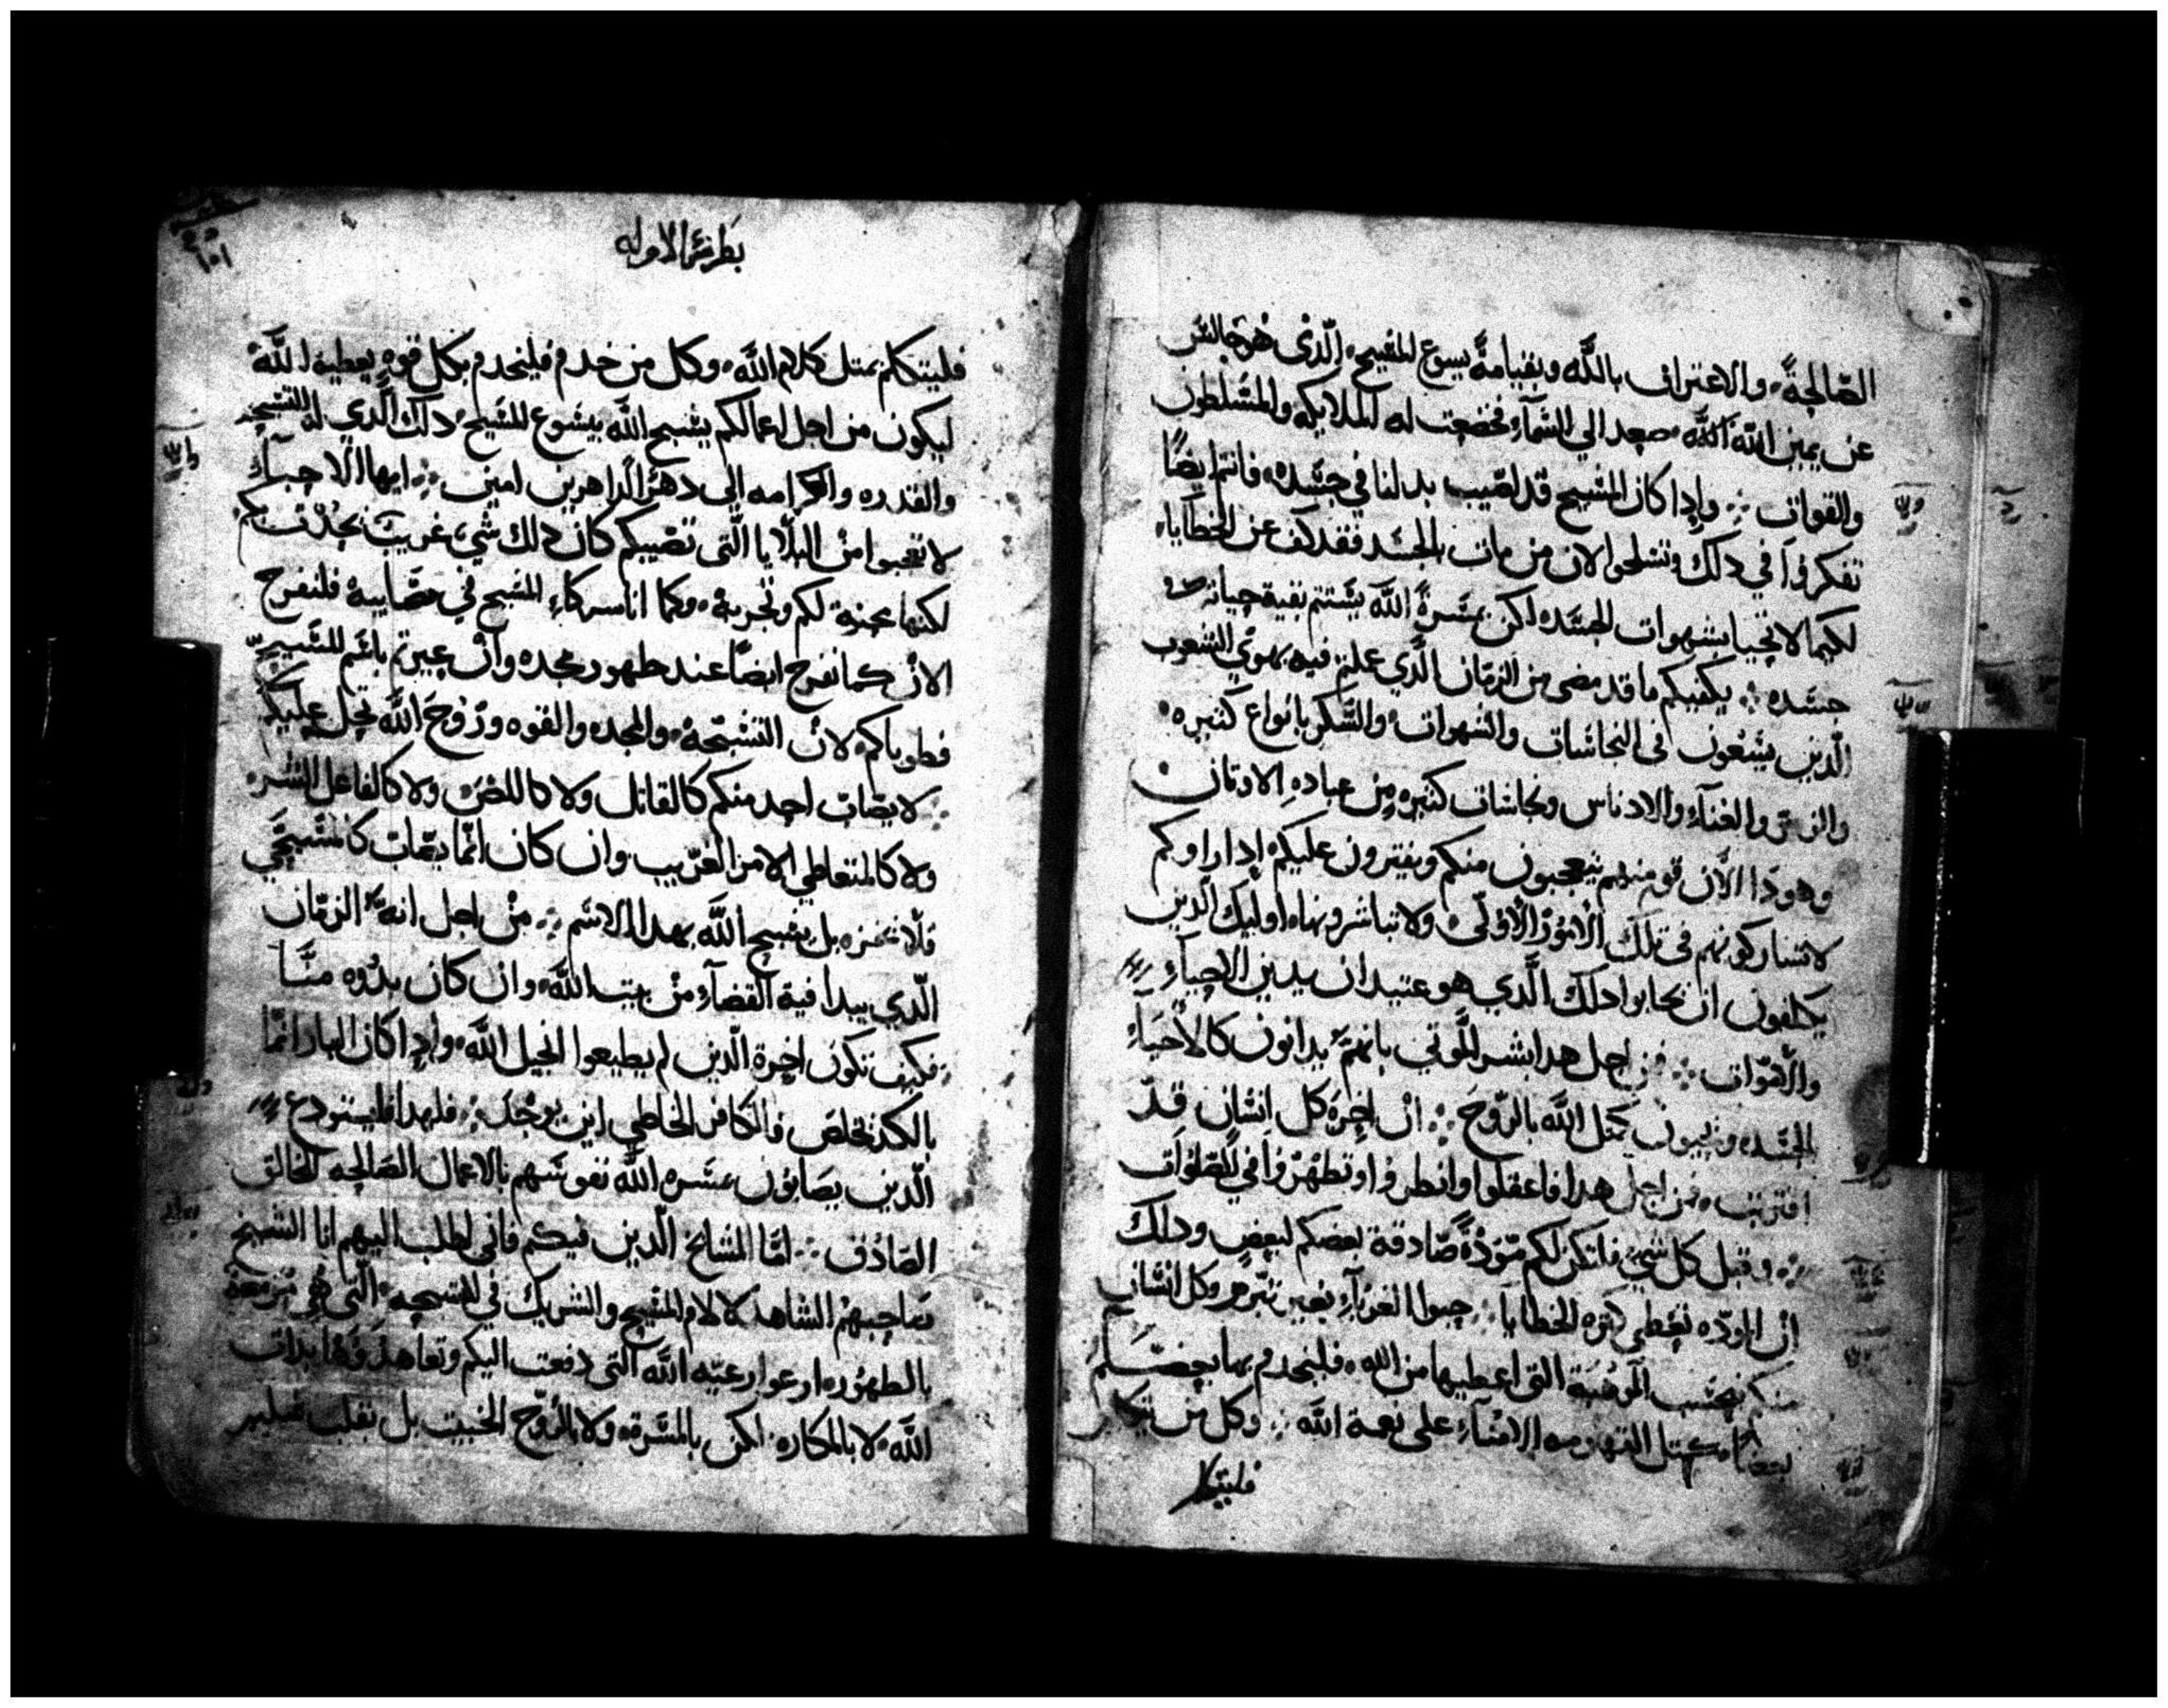 الصالحة والاعتراف بالله وبقيامة يسوع المسيح الدى هو جالس
عن يمين الله صعد الي السماء فخضعت له الملايكه والمتسلطون
والقوات وادا كان المسيح قد اصيب بدلنا في جسده فانتم ايضا
تفكروا في دلك وتسلحوا الان من مات بالجسد فقد كف عن الخطايا
لكيما لا تحيا بشهوات الجسد لكن بمسرة الله يستتم بقية حياته في
جسده يكفيكم ما قد مضى من الزمان الدي عملتم فيه بهوي الشعوب
الدين يسعون فى النجاسات والشهوات والسكر بانواع كتيره
والزمر والغناء والادناس ونجاسات كتيره من عباده الاوتان
وهودا الان قوم منهم يتعجبون منكم ويفترون عليكم ادا راوكم
لا تشاركونهم فى تلك الامور الاولى ولا تباشرونها اوليك الدين
يكلفون ان يجابوا دلك الدي هو عتيد ان يدين الاحياء
والاموات فمن اجل هدا بشر الموتي بانهم يدانون كالاحياء
بالجسد ويحيون كمتل الله بالروح ان اخرة كل انسان قد
اقتربت من اجل هدا فاعقلوا وانطروا وتطهروا في الصلوات
وقبل كل شي فلتكن لكم مودة صادقة بعضكم لبعض ودلك
ان الموده تغطى كتره الخطايا حبوا الغرباء بغير تبرم وكل انسان
منكم بحسب الموهبة التى اعطيها من الله فليخدم بها بعضكم
بعضا كمتل القهارمه الامناء على نعمة الله وكل من يتكلم
فليتكلم
بطرس الاوله
فليتكلم بمتل كلام الله وكل من خدم فليخدم بكل قوه يعطيه الله
ليكون من اجل اعمالكم يسبح الله بيسوع المسيح دلك الدي له التسبيح
والقدره والكرامه الي دهر الداهرين امين ايها الاحباء
لا تعجبوا من البلايا التى تصيبكم كان دلك شي غريب يحدت بكم
لكنها محنة لكم وتجربة وكما انا شركاء المسيح في مصايبه فلنفرح
الان كما نفرح ايضا عند طهور مجده وان عيرتم باسم المسيح
فطوباكم لان التسبحة والمجد والقوه وروح الله تحل عليكم
لا يصاب احد منكم كالقاتل ولا كاللص ولا كالفاعل الشر
ولا كالمتعاطي الامر الغريب وان كان انما يصاب كالمسيحي
فلا يخزه بل يسبح الله بهدا الاسم من اجل انه الزمان
الدي يبدا فية القضاء من بيت الله وان كان بدوه منا
فكيف تكون اخرة الدين لم يطيعوا انجيل الله وادا كان البار انما
بالكد يخلص فالكافر الخاطي اين يوجد فلهدا فليستودع
الدين يصابون بمسره الله نفوسهم بالاعمال الصالحه للخالق
الصادق اما المشايخ الدين فيكم فاني اطلب اليهم انا الشيخ
صاحبهم الشاهد لالام المسيح والشريك في التسبحه التى هي مزمعه
بالطهور ارعوا رعيه الله التى دفعت اليكم وتعاهدوها بدات
الله لا بالمكاره لكن بالمسرة ولا بالروح الخبيت بل بقلب سليم